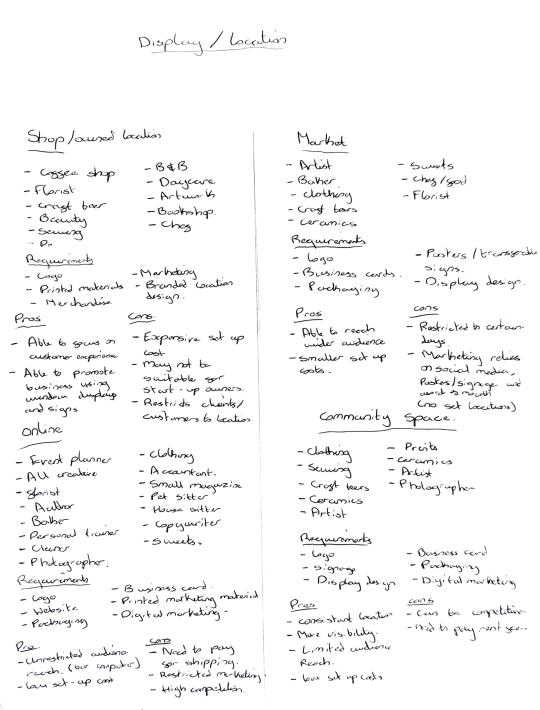 Display / Location
Shop/owned location
- Coffee shop
- Florist
- Craft beer
- Beauty
- Sewing
- B&B
- Daycare
- Artwork
- Bookshop
- Chef
Requirements
- Logo
- Printed materials
- Merchandise
- Marketing
- Branded location
design.
Pros
- Able to focus on
customer experience
- Able to promote
business using
window displays
and signs
Cons
- Expensive set up
cost
- May not be
suitable for
start-up owners.
- Restricts clients/
customers to location
Online
- Event planner
- All creative
- florist
- Author
- Baker
- Personal trainer
- Cleaner
- Photographer.
- Clothing
- Accountant.
- Small magazine
- Pet sitter
- House sitter
- Copywriter
- Sweets.
Requirements
- Logo
- Website
- Packaging
- Business card.
- Printed marketing material
- Digital marketing.
Pros
- Unrestricted audience
reach. (
- low set-up cost
Cons
- Need to pay
for shipping.
- Restricted marketing.
- High competition.
Market
- Artist
- Baker
- Clothing
- Craft beers
- Ceramics
- Sweets
- Chef/food
- Florist
Requirements
- Logo
- Business cards.
- Packaging
- Posters / transferable
signs.
- Display design.
Pros
- Able to reach
wider audience
- smaller set up
costs.
cons
- Restricted to certain
days
- Marketing relies
on social media,
Posters/signage
(no set locations)
Community Space.
- Clothing
- Sewing
- Craft beers
- Ceramics
- Artist
- Prints
- ceramics
- Artist
- Photographer
Requirements
- Logo
- Signage
- Display design
- Business card
- Packaging
- Digital marketing
Pros
- consistant location
- More visibility.
- Limited audience
Reach.
- low set up costs
cons
- Can be competitive.
- need to pay rent